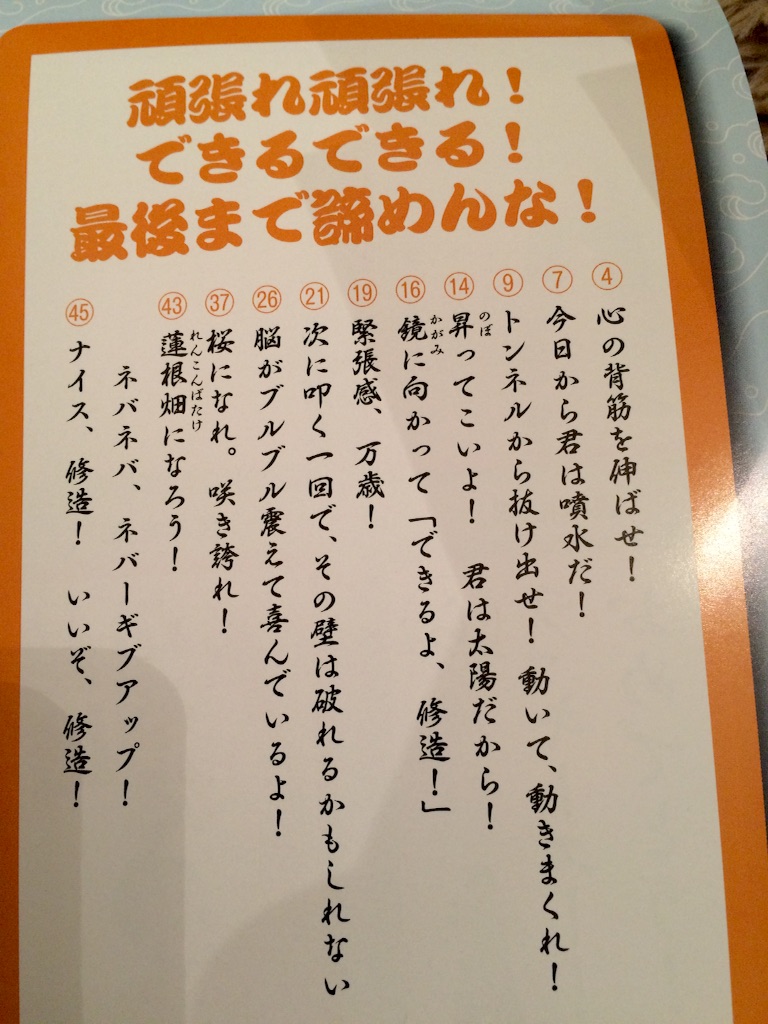 頑張れ頑張れ！
できるできる！
最後まで諦めんな！
④ 心の背筋を伸ばせ！
⑦ 今日から君は噴水だ！
⑨ トンネルから抜け出せ！　動いて、動きまくれ！
⑭ 昇ってこいよ！　君は太陽だから！
のぼ
⑯ 鏡に向かって「できるよ、修造！」
かがみ
⑲ 緊張感、万歳！
㉑ 次に叩く一回で、その壁は破れるかもしれない
㉖ 脳がブルブル震えて喜んでいるよ！
㊲ 桜になれ。咲き誇れ！
㊸ 蓮根畑になろう！
れんこんばたけ
ネバネバ、ネバーギブアップ！
㊺ ナイス、修造！　いいぞ、修造！